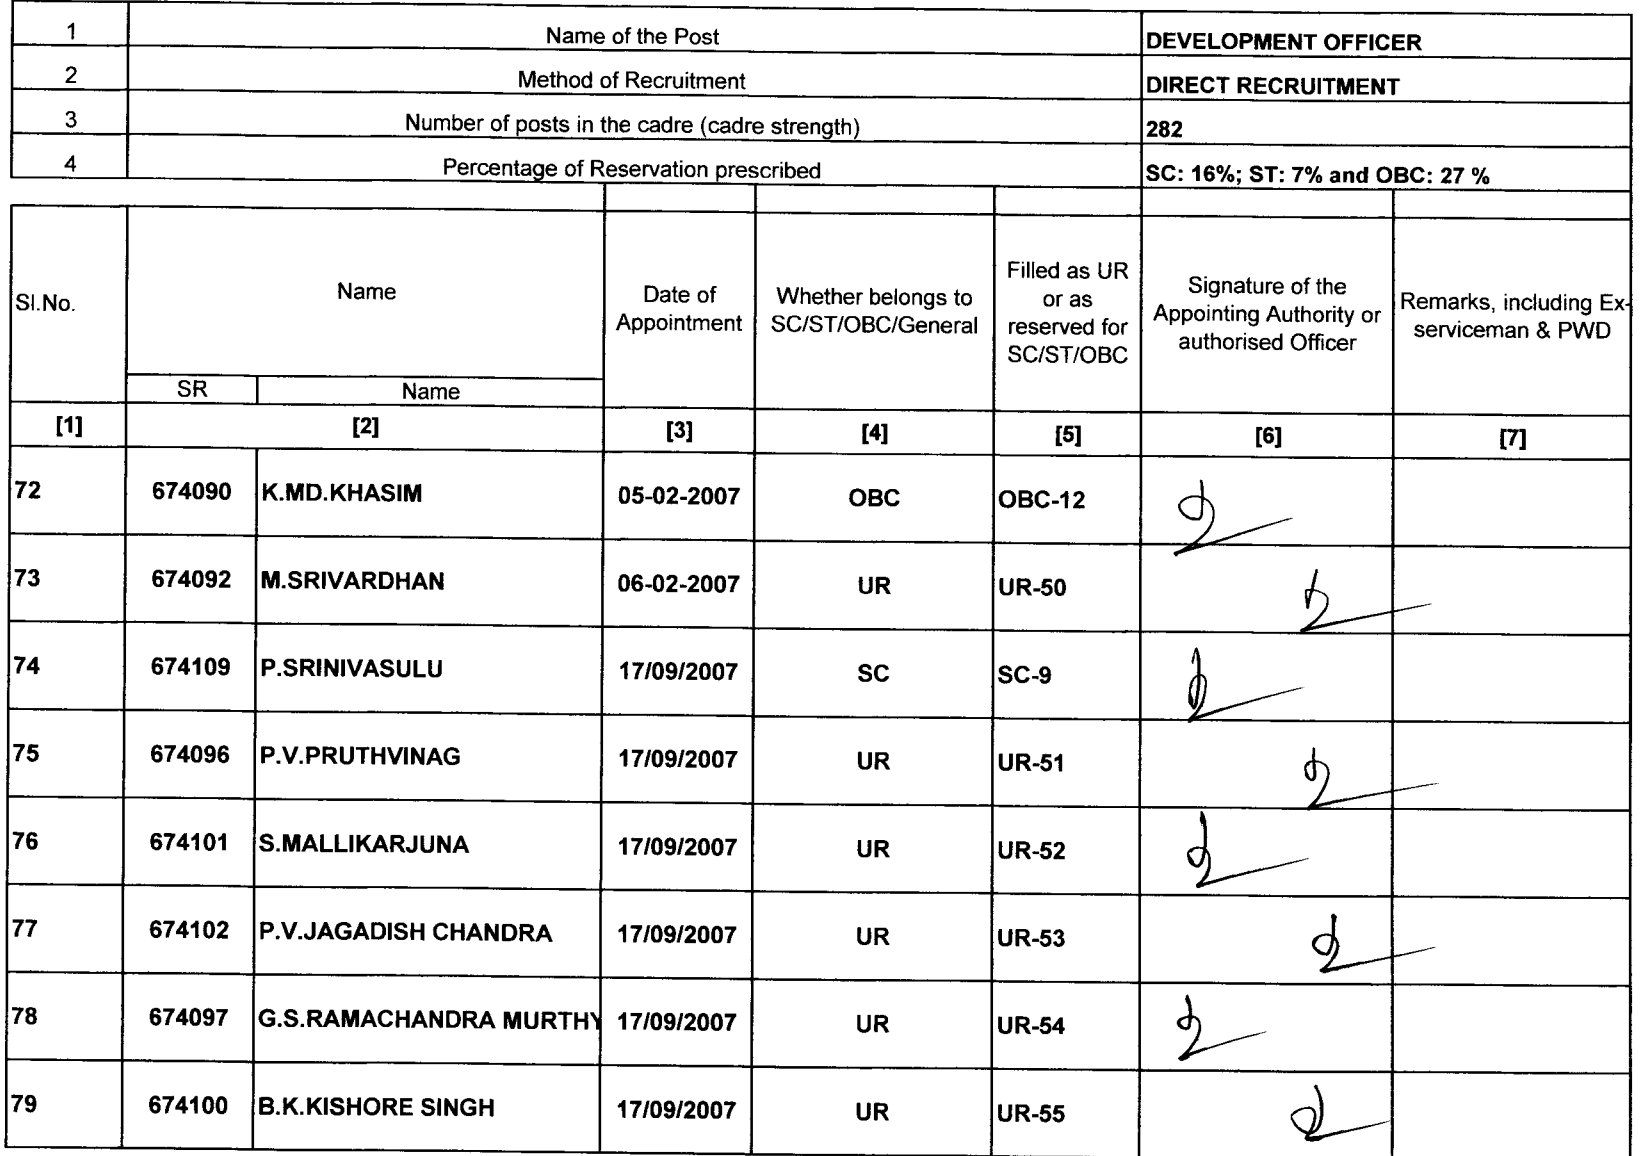 1 Name of the Post DEVELOPMENT OFFICER
2 Method of Recruitment DIRECT RECRUITMENT
3 Number of posts in the cadre (cadre strength) 282
4 Percentage of Reservation prescribed SC: 16%; ST: 7% and OBC: 27 %
Sl.No. Name Date of Appointment Whether belongs to SC/ST/OBC/General Filled as UR or as reserved for SC/ST/OBC Signature of the Appointing Authority or authorised Officer Remarks, including Ex-serviceman & PWD
SR Name
[1] [2] [3] [4] [5] [6] [7]
72 674090 K.MD.KHASIM 05-02-2007 OBC OBC-12
73 674092 M.SRIVARDHAN 06-02-2007 UR UR-50
74 674109 P.SRINIVASULU 17/09/2007 SC SC-9
75 674096 P.V.PRUTHVINAG 17/09/2007 UR UR-51
76 674101 S.MALLIKARJUNA 17/09/2007 UR UR-52
77 674102 P.V.JAGADISH CHANDRA 17/09/2007 UR UR-53
78 674097 G.S.RAMACHANDRA MURTHY 17/09/2007 UR UR-54
79 674100 B.K.KISHORE SINGH 17/09/2007 UR UR-55